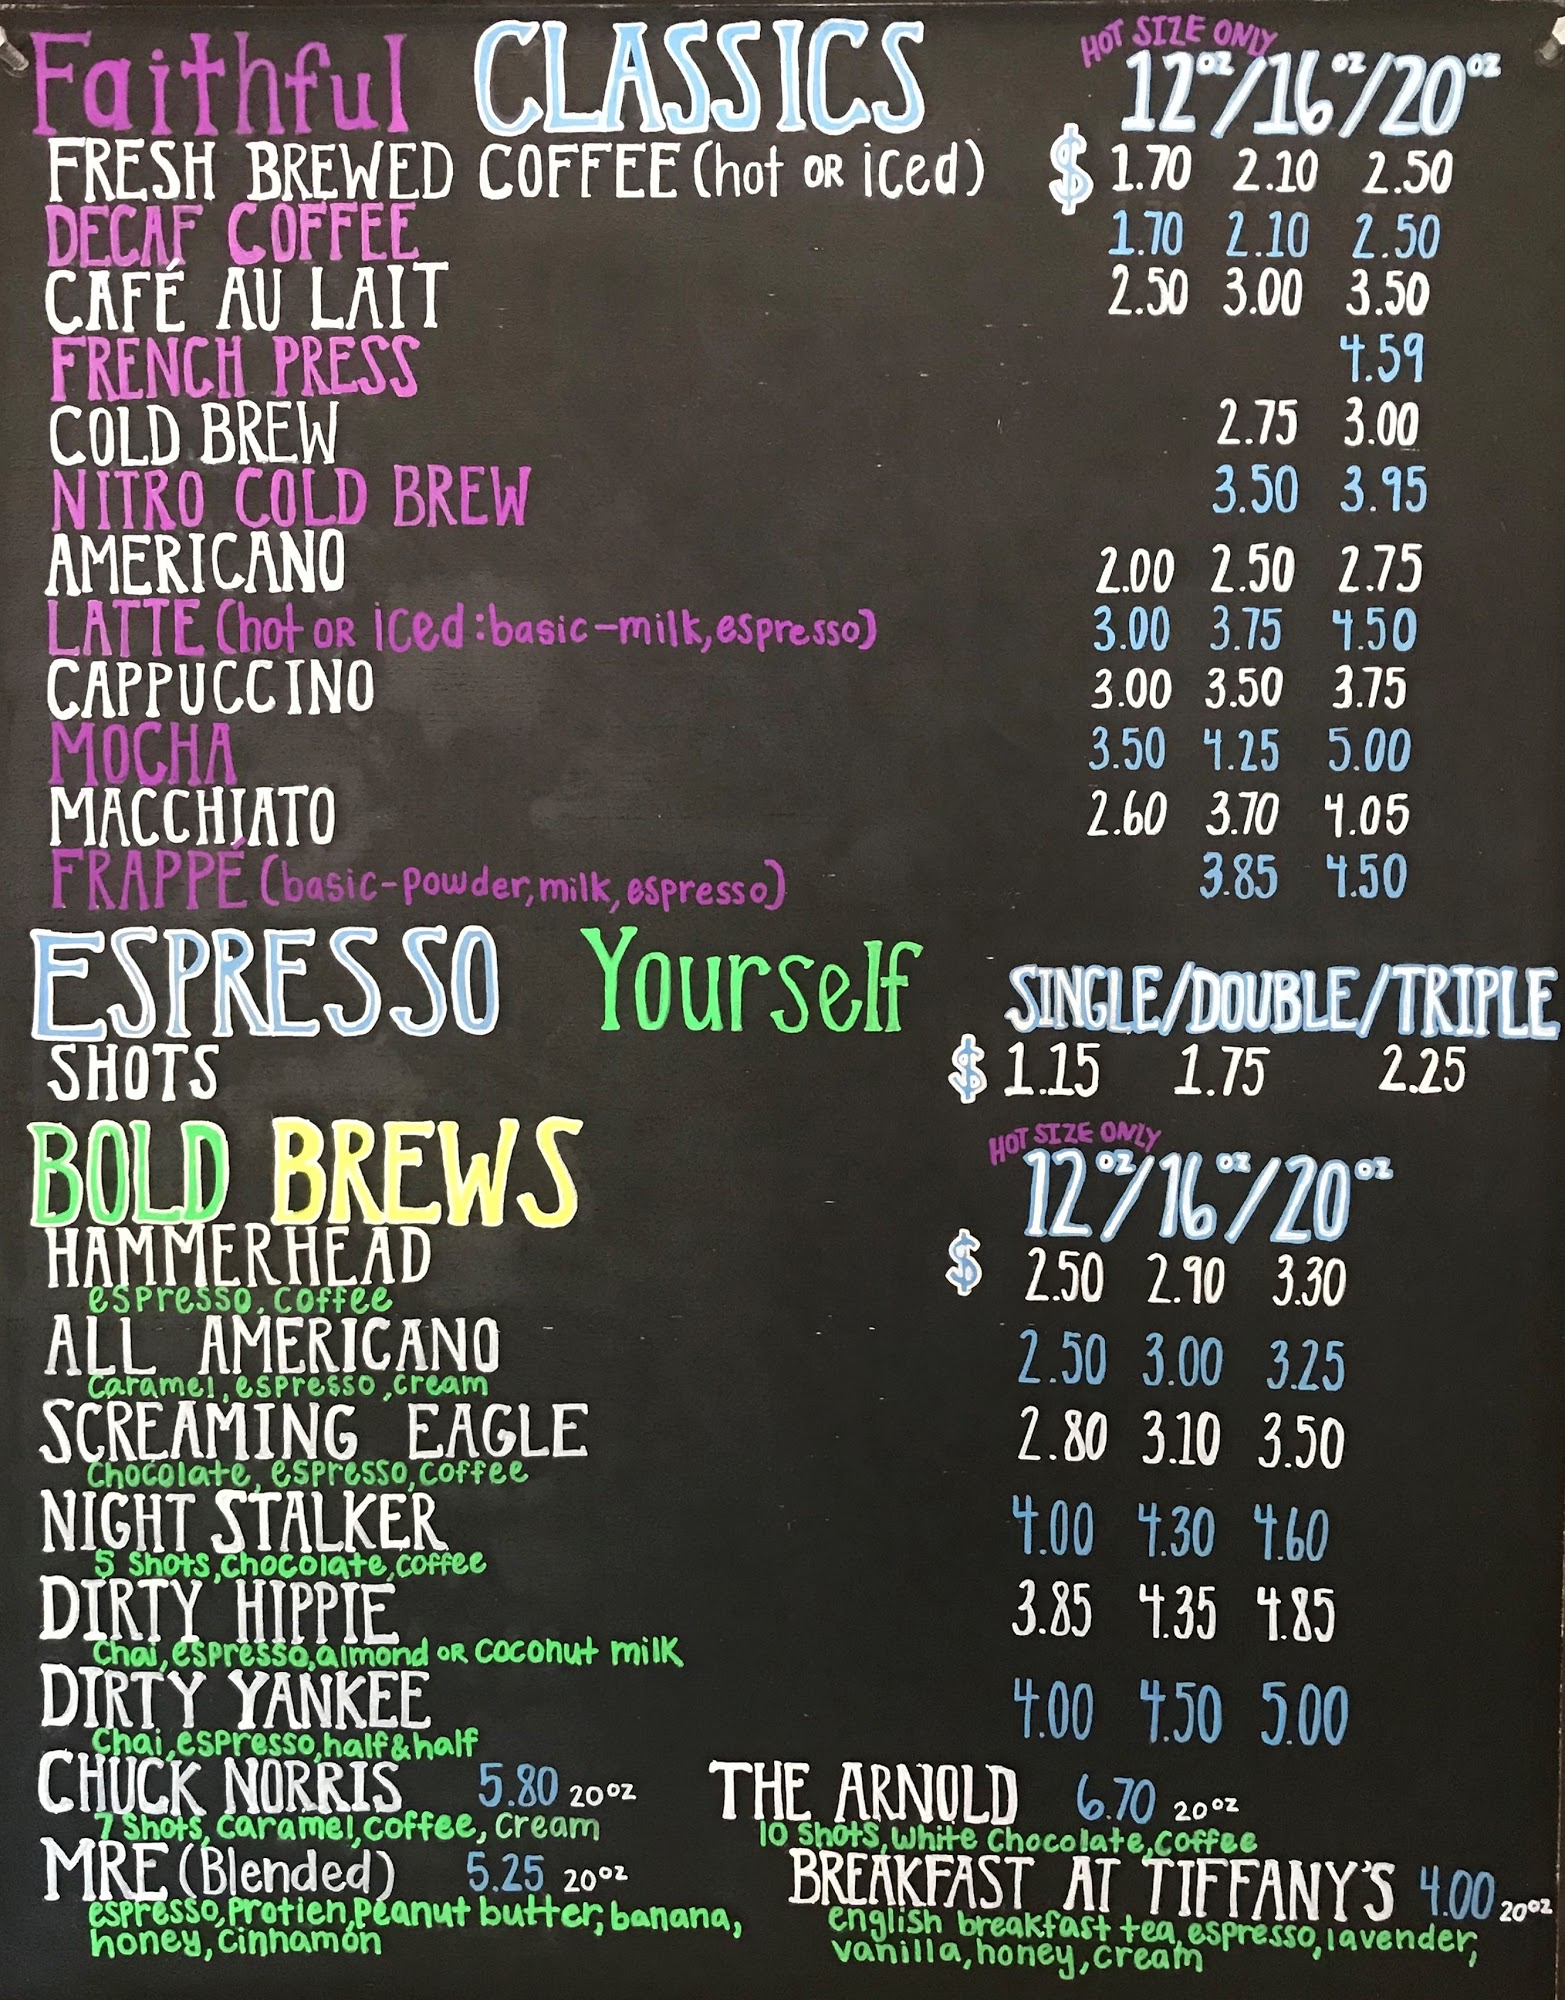 HOT SIZE ONLY
Faithful CLASSICS 12oz/16oz/20oz
FRESH BREWED COFFEE (hot OR iced) $ 1.70 2.10 2.50
DECAF COFFEE 1.70 2.10 2.50
CAFÉ AU LAIT 2.50 3.00 3.50
FRENCH PRESS 4.59
COLD BREW 2.75 3.00
NITRO COLD BREW 3.50 3.95
AMERICANO 2.00 2.50 2.75
LATTE (hot OR iced: basic-milk, espresso) 3.00 3.75 4.50
CAPPUCCINO 3.00 3.50 3.75
MOCHA 3.50 4.25 5.00
MACCHIATO 2.60 3.70 4.05
FRAPPÉ (basic-powder, milk, espresso) 3.85 4.50
ESPRESSO Yourself SINGLE/DOUBLE/TRIPLE
SHOTS $ 1.15 1.75 2.25
HOT SIZE ONLY
BOLD BREWS 12oz/16oz/20oz
HAMMERHEAD $ 2.50 2.90 3.30
espresso, coffee
ALL AMERICANO 2.50 3.00 3.25
caramel, espresso, cream
SCREAMING EAGLE 2.80 3.10 3.50
Chocolate, espresso, coffee
NIGHT STALKER 4.00 4.30 4.60
5 shots, chocolate, coffee
DIRTY HIPPIE 3.85 4.35 4.85
Chai, espresso, almond OR coconut milk
DIRTY YANKEE 4.00 4.50 5.00
Chai, espresso, half & half
CHUCK NORRIS 5.80 20oz THE ARNOLD 6.70 20oz
7 shots, caramel, coffee, cream 10 shots, white chocolate, coffee
MRE (Blended) 5.25 20oz BREAKFAST AT TIFFANY'S 4.00 20oz
espresso, protien, peanut butter, banana, english breakfast tea, espresso, lavender,
honey, cinnamon vanilla, honey, cream